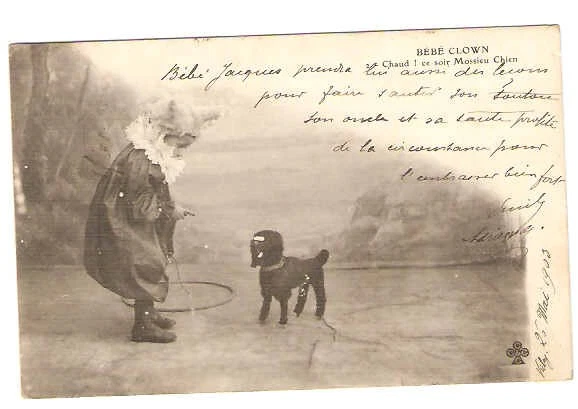 BÉBÉ CLOWN
Chaud ! ce soir Mossieu Chien
Bébé Jacques prendra lui aussi des leçons
pour faire sauter son toutou
son oncle et sa tante profite
de la circonstance pour
l'embrasser bien fort
25 Mai 1903